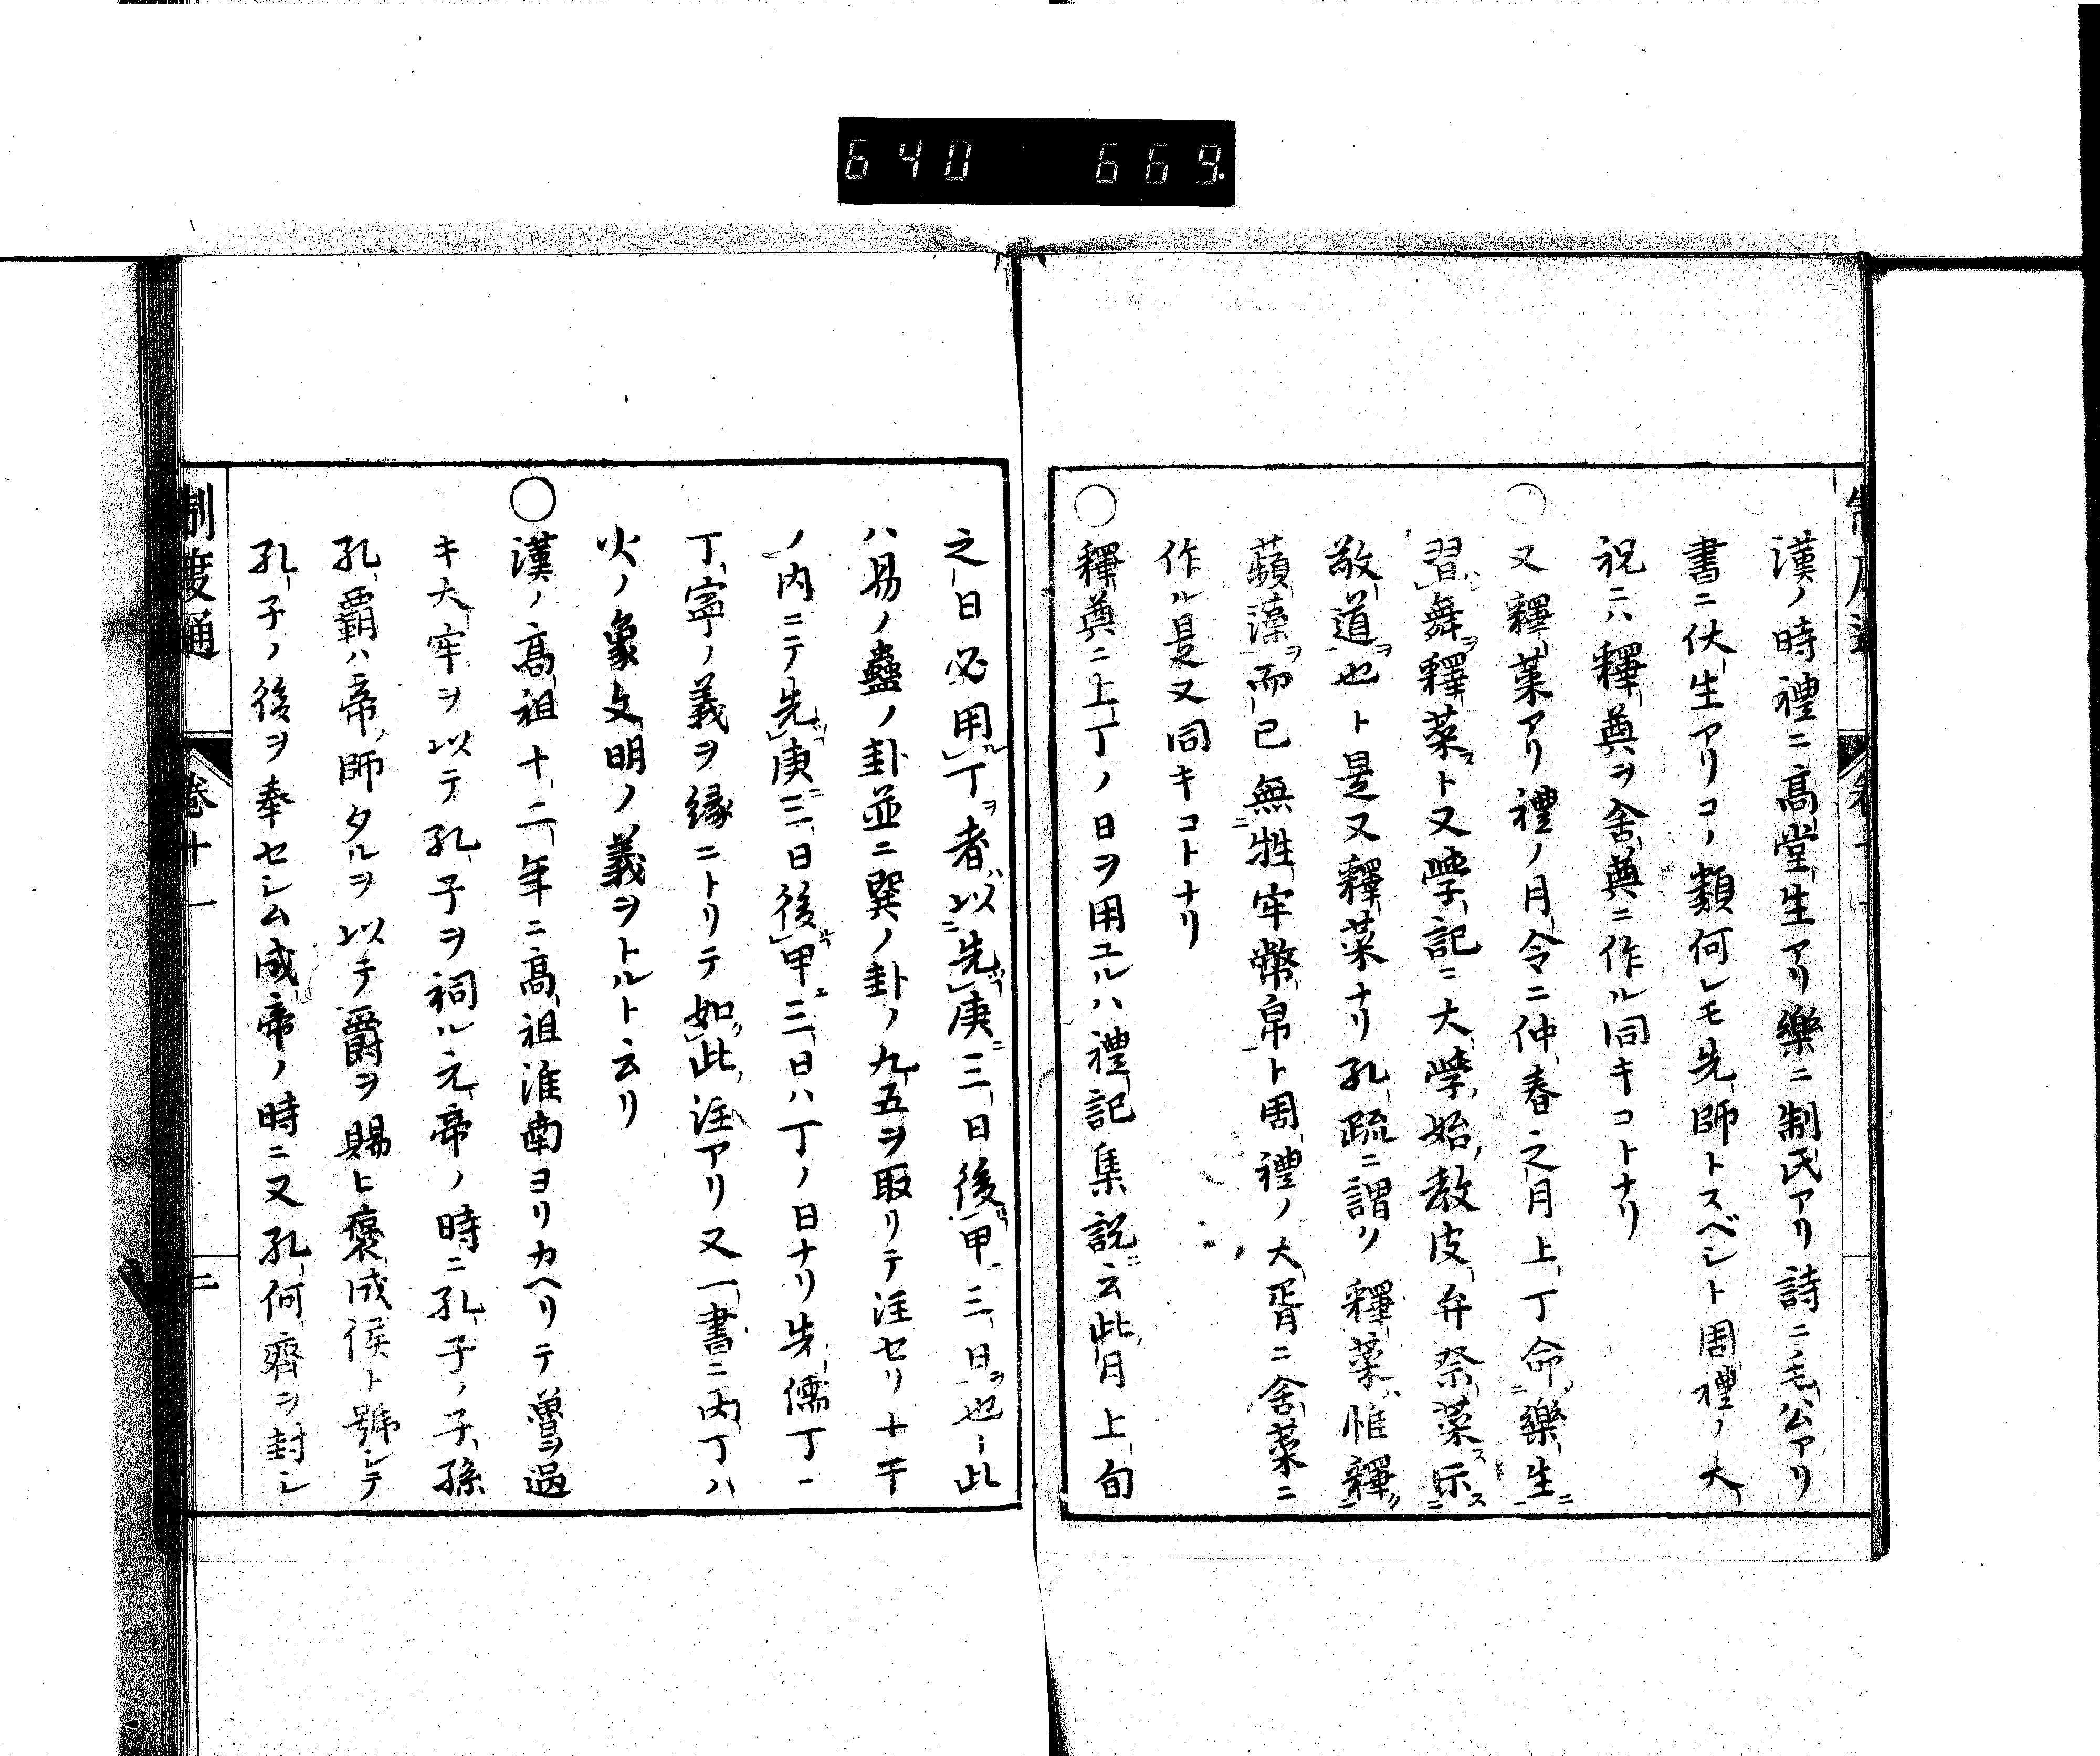 640 669.
漢ノ時禮ニ高堂生アリ樂ニ制氏アリ詩ニ毛公アリ
書ニ伏生アリコノ類何レモ先師トスベシト周禮ノ大
祝ニハ釋奠ヲ舍奠ニ作ル同キコトナリ
○又釋菜アリ禮ノ月令ニ仲春之月上丁命樂生
習舞釋菜ト又學記ニ大學始教皮弁祭菜示
敬道也ト是又釋菜ナリ孔疏ニ謂リ釋菜惟釋
蘋藻而已無牲牢幣帛ト周禮ノ大胥ニ舍菜ニ
作ル是又同キコトナリ
○釋奠ニ上丁ノ日ヲ用ユルハ禮記集説云此月上旬
之日必用丁者以先庚三日後甲三日也ト此
ハ易ノ蠱ノ卦並ニ巽ノ卦ノ九五ヲ取リテ注セリ十干
ノ内ニテ先庚三日後甲三日ハ丁ノ日ナリ先儒丁ハ
丁寧ノ義ヲ縁ニトリテ如此注アリ又一書ニ丙丁ハ
火ノ象文明ノ義ヲトルト云リ
○漢ノ高祖十二年ニ高祖淮南ヨリカヘリテ魯ヲ過
キ大牢ヲ以テ孔子ヲ祠ル元帝ノ時ニ孔子ノ子孫
孔覇ハ帝師タルヲ以テ爵ヲ賜ヒ褒成侯ト號シテ
孔子ノ後ヲ奉セシム成帝ノ時ニ又孔何齊ヲ封シ
制度通 卷十一 二